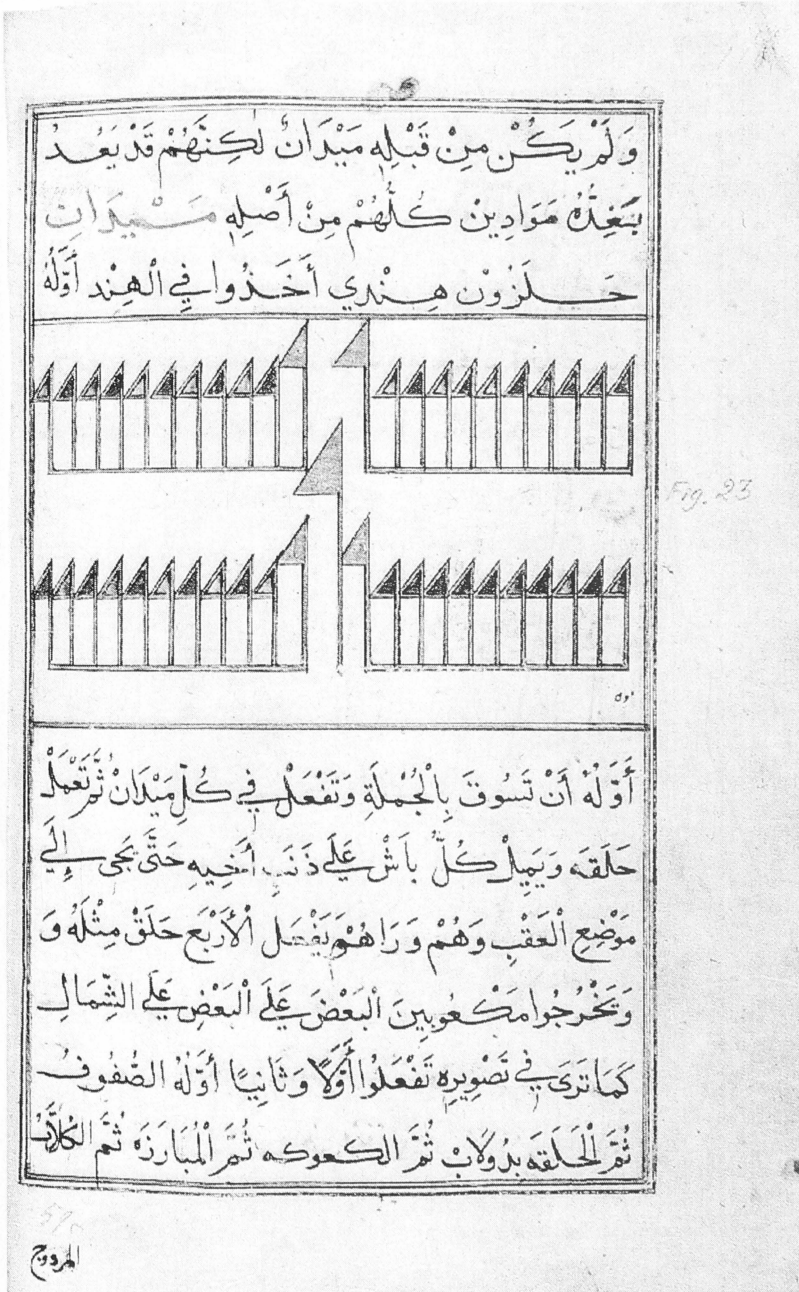 وَلَمْ يَكُنْ مِنْ قَبْلِهِ مَيْدَانٌ لٰكِنَّهُمْ قَدْ يَعُدُ
مَوَادِينْ كُلُهُمْ مِنْ أَصْلِهِ مَيْدَان
حَلَزُوْن هِنْدِي أَخَذُوا فِي الْهِنْد أَوَّلُهُ
Fig. 23
أَوَّلُهُ أَنْ تَسُوقَ بِالْجُمْلَةِ وَتَفْعَلْ فِي كُلِّ مَيْدَانْ ثُمَّ تَعْمَلْ
حَلَقَه وَيَمِيلْ كُلُّ بَاشْ عَلَى ذَنَبِ أَخِيهِ حَتَّى يَجِى إِلَى
مَوْضِعِ الْعَقْبِ وَهُمْ وَرَاهُمْ يَفْعَل الْأَرْبَع حَلَقْ مِثْلَهُ وَ
وَتَخْرُجُوا مَكْعُوبِينَ الْبَعْضَ عَلَى الْبَعْضِ عَلَى الشِّمَالِ
كَمَا تَرَى فِي تَصْوِيرِهِ تَفْعَلُوا أَوَّلًا وَثَانِيًا أَوَّلُهُ الصُّفُوفُ
ثُمَّ الْحَلَقَه بِدُولَابْ ثُمَّ الكعوكه ثُمَّ الْمُبَارَزَه ثُمَّ الكُلَّابْ